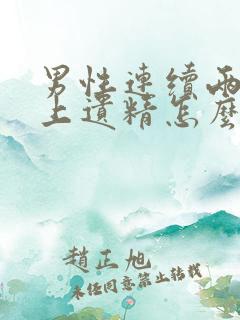 男性連續兩
上遺精怎麼
趙正旭
未经同意禁止转载